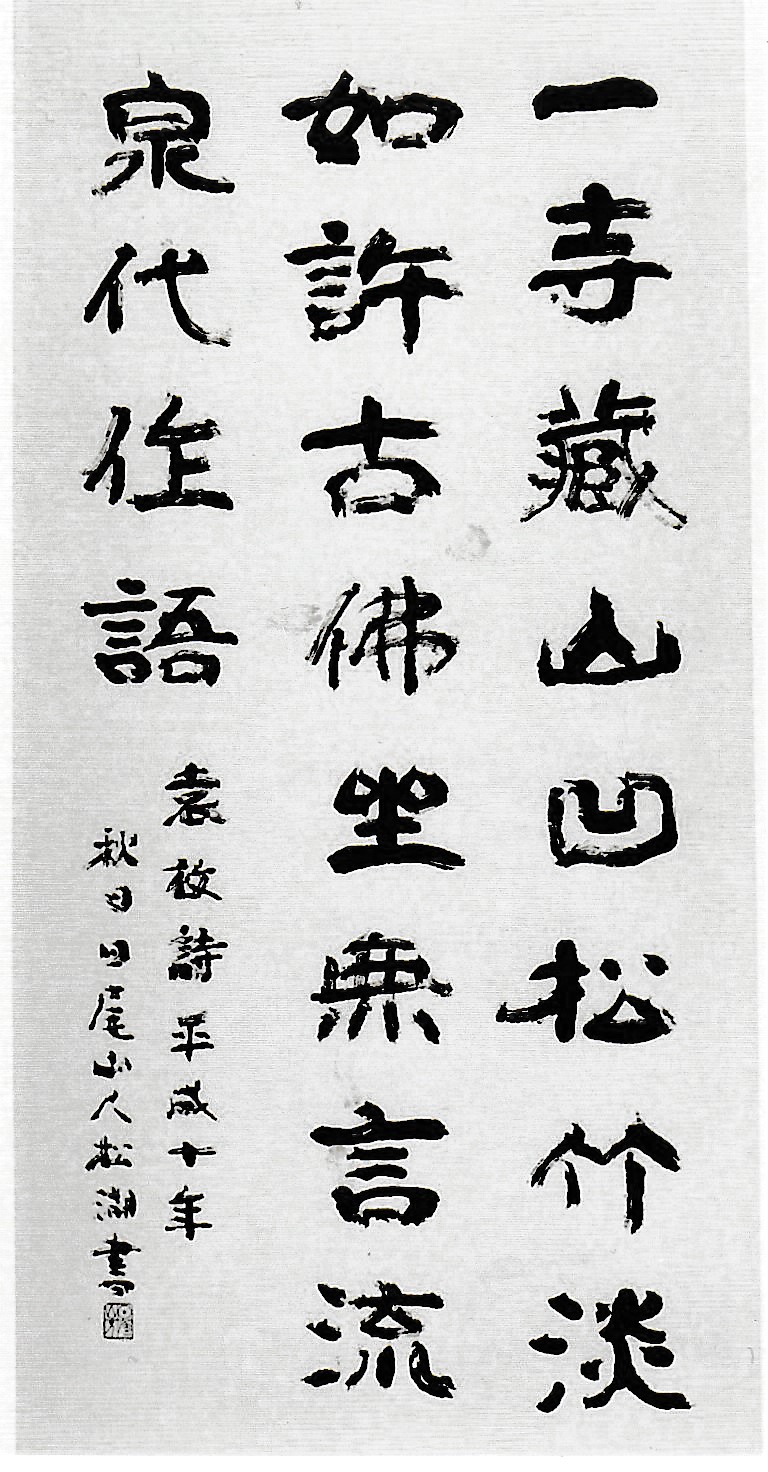 一寺藏山凹松竹淡
如許古佛坐無言流
泉代作語
袁枚詩平成十年
秋日日尾山人松湖書